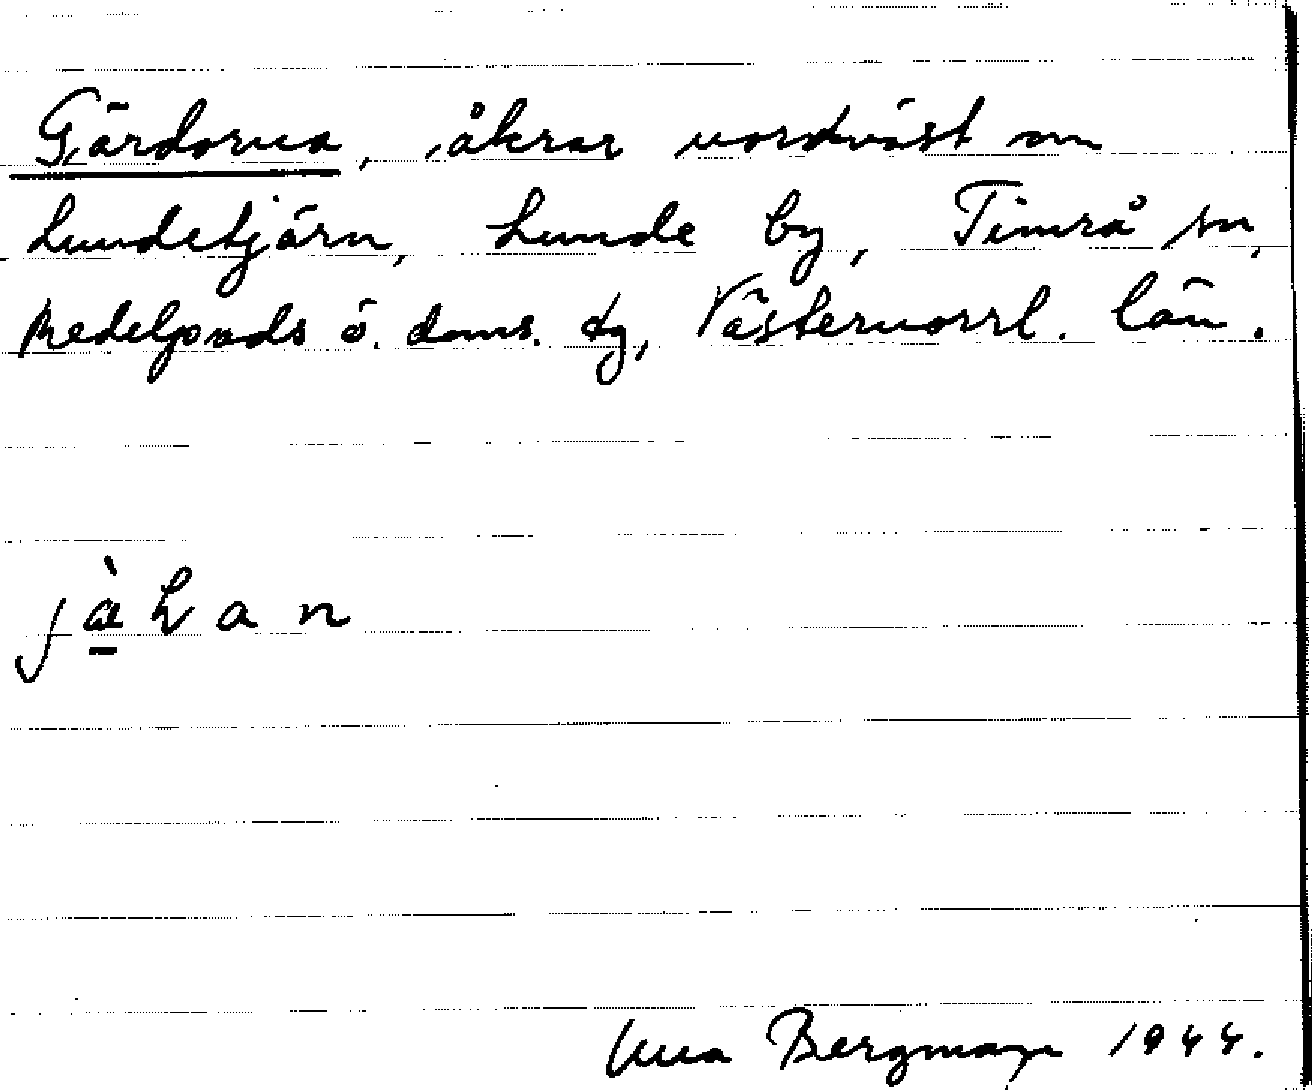 Gärdorna, åkrar nordväst om
Lundetjärn, Lunde by, Timrå sn,
Medelpads ö. doms. tg, Västernorrl. län.
jàLan
Bergman 1944.